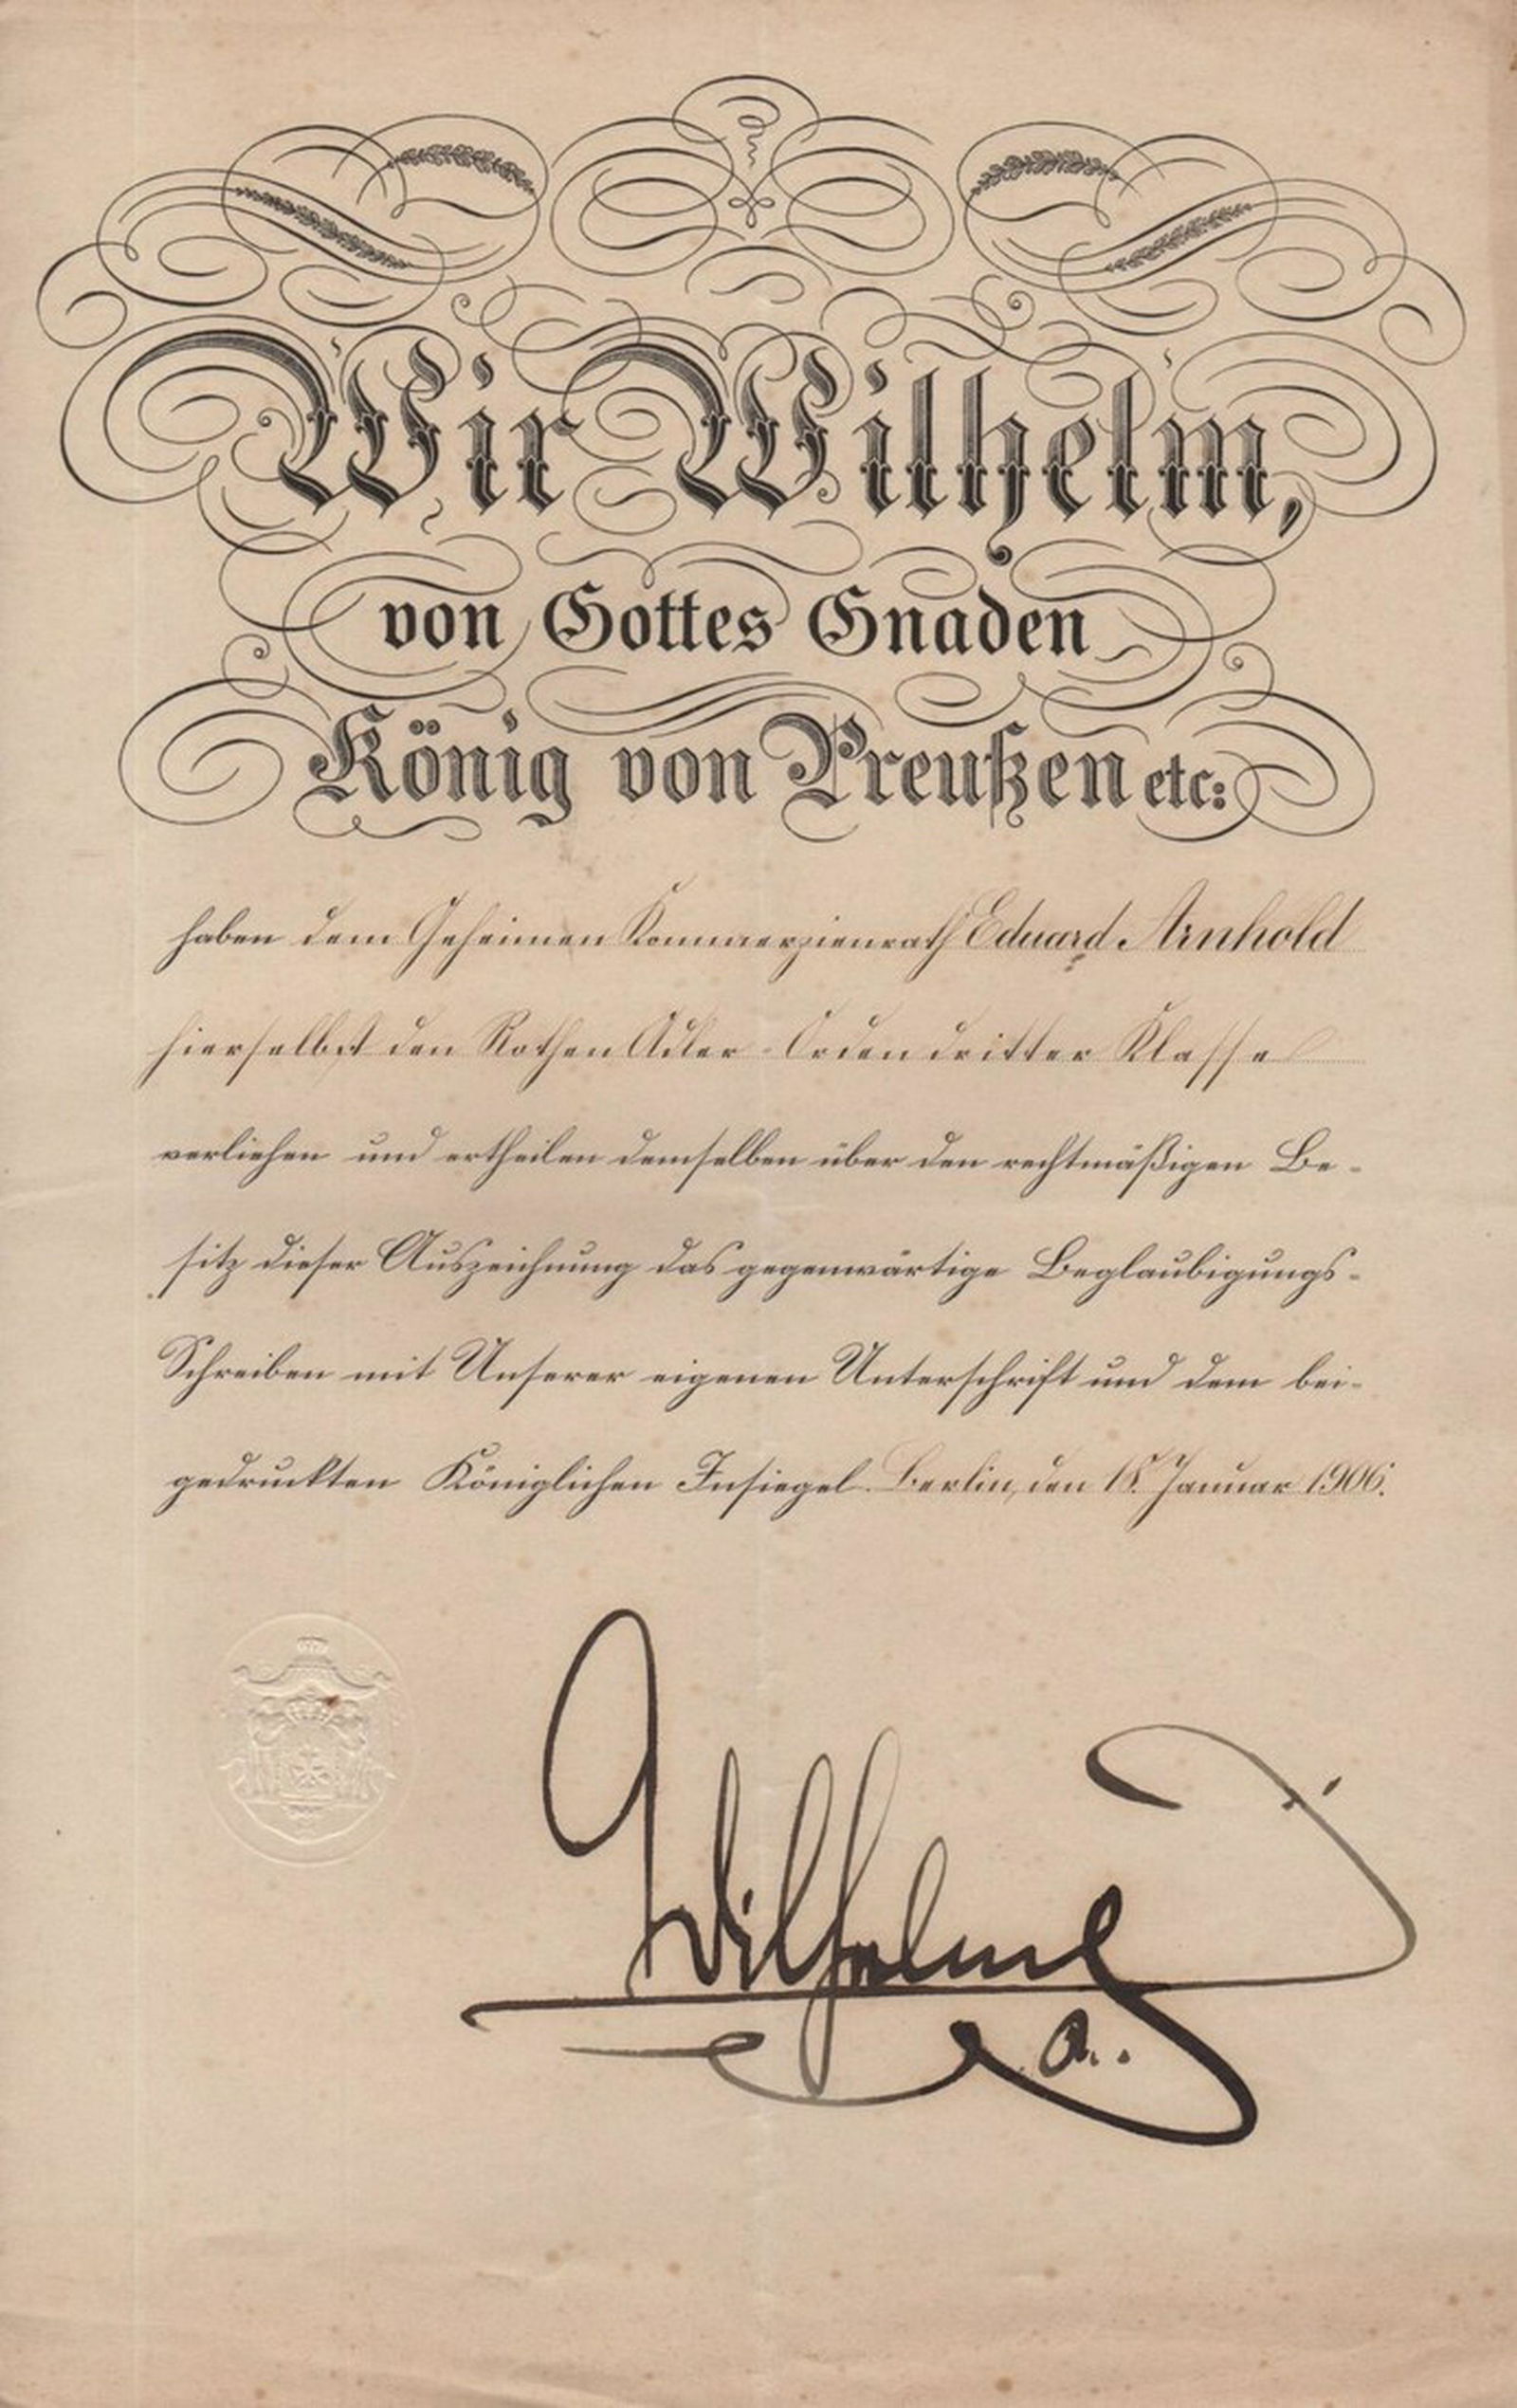 Wir Wilhelm,
von Gottes Gnaden
König von Preußen etc:
haben dem Geheimen Kommerzienrath Eduard Arnhold
hierselbst den Rothen Adler-Orden dritter Klasse
verliehen und ertheilen demselben über den rechtmäßigen Be-
sitz dieser Auszeichnung das gegenwärtige Beglaubigungs-
Schreiben mit Unserer eigenen Unterschrift und dem bei-
gedruckten Königlichen Insiegel. Berlin, den 18. Januar 1906.
Wilhelm